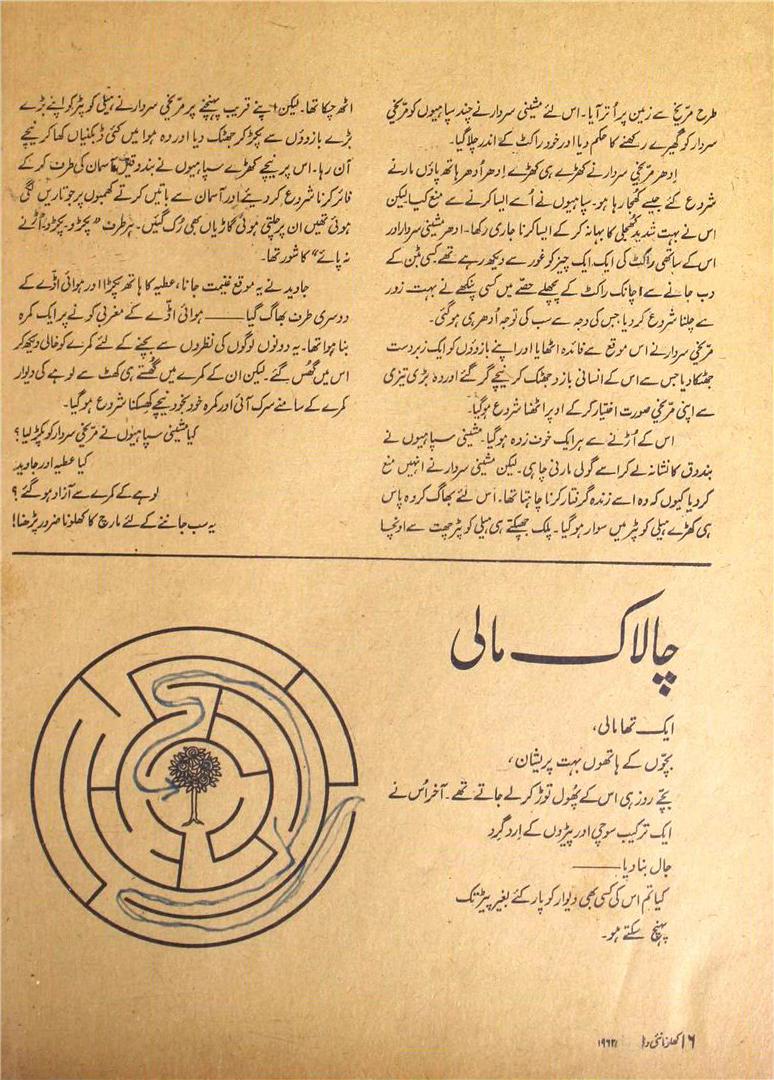 طرح مریخ سے زمین پر اُتر آیا۔ اس لئے مشینی سردار نے چند سپاہیوں کو مریخی
سردار کو گھیرے رکھنے کا حکم دیا اور خود راکٹ کے اندر چلا گیا۔
اِدھر مریخی سردار نے کھڑے ہی کھڑے اِدھر اُدھر ہاتھ پاؤں مارنے
شروع کئے جیسے کھُجا رہا ہو۔ سپاہیوں نے اُسے ایسا کرنے سے منع کیا لیکن
اس نے بہت شدید کھُجلی کا بہانہ کر کے ایسا کرنا جاری رکھا۔ ادھر مشینی سردار اور
اس کے ساتھی راکٹ کی ایک ایک چیز کو غور سے دیکھ رہے تھے کسی بٹن کے
دب جانے سے اچانک راکٹ کے پچھلے حصّے میں کسی پنکھے نے بہت زور
سے چلنا شروع کر دیا جس کی وجہ سے سب کی توجہ اُدھر ہی ہو گئی۔
مریخی سردار نے اس موقع سے فائدہ اٹھایا اور اپنے بازوؤں کو ایک زبردست
جھٹکا دیا جس سے اس کے انسانی بازو جھٹک کر نیچے گر گئے اور وہ بڑی تیزی
سے اپنی مریخی صورت اختیار کر کے اوپر اٹھنا شروع ہو گیا۔
اس کے اُڑنے سے ہر ایک خوف زدہ ہو گیا۔ مشینی سپاہیوں نے
بندوق کا نشانہ لے کر اسے گولی مارنی چاہی۔ لیکن مشینی سردار نے انہیں منع
کر دیا کیوں کہ وہ اسے زندہ گرفتار کرنا چاہتا تھا۔ اس لئے بھاگ کر وہ پاس
ہی کھڑے ہیلی کوپٹر میں سوار ہو گیا۔ پلک جھپکتے ہی ہیلی کوپٹر چھت سے اونچا
اٹھ چکا تھا۔ لیکن اپنے قریب پہنچنے پر مریخی سردار نے ہیلی کوپٹر کو اپنے بڑے
بڑے بازوؤں سے پکڑ کر جھٹک دیا اور وہ ہوا میں کئی ڈبکنیاں کھا کر نیچے
آن رہا۔ اس پر نیچے کھڑے سپاہیوں نے بندوقیں آسمان کی طرف کر کے
فائر کرنا شروع کر دیئے اور آسمان سے باتیں کرتے کھمبوں پر جو تاریں لگی
ہوئی تھیں ان پر چلتی ہوئی گاڑیاں بھی رُک گئیں۔ ہر طرف "پکڑو۔ پکڑو۔ اُڑنے
نہ پائے" کا شور تھا۔
جاوید نے یہ موقع غنیمت جانا، عطیہ کا ہاتھ پکڑا اور ہوائی اڈّے کے
دوسری طرف بھاگ گیا ——— ہوائی اڈّے کے مغربی کونے پر ایک کمرہ
بنا ہوا تھا۔ یہ دونوں لوگوں کی نظروں سے بچنے کے لئے کمرے کو خالی دیکھ کر
اس میں گھُس گئے۔ لیکن ان کے کمرے میں گھُستے ہی کھٹ سے لوہے کی دیوار
کمرے کے سامنے سرک آئی اور کمرہ خود بخود نیچے کھسکنا شروع ہو گیا۔
کیا مشینی سپاہیوں نے مریخی سردار کو پکڑ لیا؟
کیا عطیہ اور جاوید
لوہے کے کمرے سے آزاد ہو گئے؟
یہ سب جاننے کے لئے مارچ کا کھلونا ضرور پڑھنا!
چالاک مالی
ایک تھا مالی،
بچّوں کے ہاتھوں بہت پریشان،
بچّے روز ہی اس کے پھُول توڑ کر لے جاتے تھے۔ آخر اُس نے
ایک ترکیب سوچی اور پیڑوں کے اِرد گِرد
جال بنا دیا ———
کیا تم اس کی کسی بھی دیوار کو پار کئے بغیر پیڑ تک
پہنچ سکتے ہو۔
۱۶ کھلونا نئی د